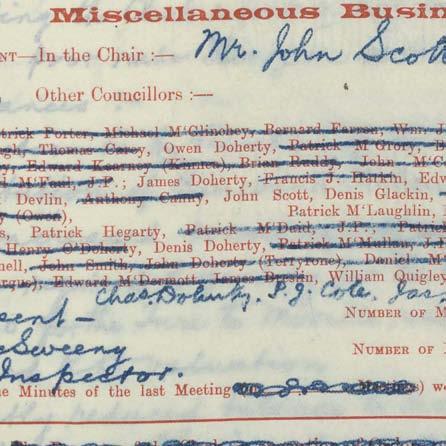 Miscellaneous Busin
NT—In the Chair :— Mr. John Scott
Other Councillors :—
trick Porter, Michael M'Glinchey, Bernard Farren, Wm.
gh, Thomas Carey, Owen Doherty, Patrick M'Grory,
y, Edward Kearney (Kinnea), Brian Roddy, John M'G
d M'Faul, J.P.; James Doherty, Francis J. Harkin, Edw
Devlin, Anthony Canny, John Scott, Denis Glackin,
y (Owen), Patrick M'Laughlin,
s, Patrick Hegarty, Patrick M'Daid, J.P., Patrick
Henry O'Doherty, Denis Doherty, Patrick M'Mullan, J.
nell, John Smith, John Doherty (Terryrone), Daniel M'
argus), Edward M'Dermott, James Breslin, William Quigley
Chas Doherty, P.J. Cole, Jas
sent — NUMBER OF M
cSweeny NUMBER OF
Inspector.
e Minutes of the last Meeting w